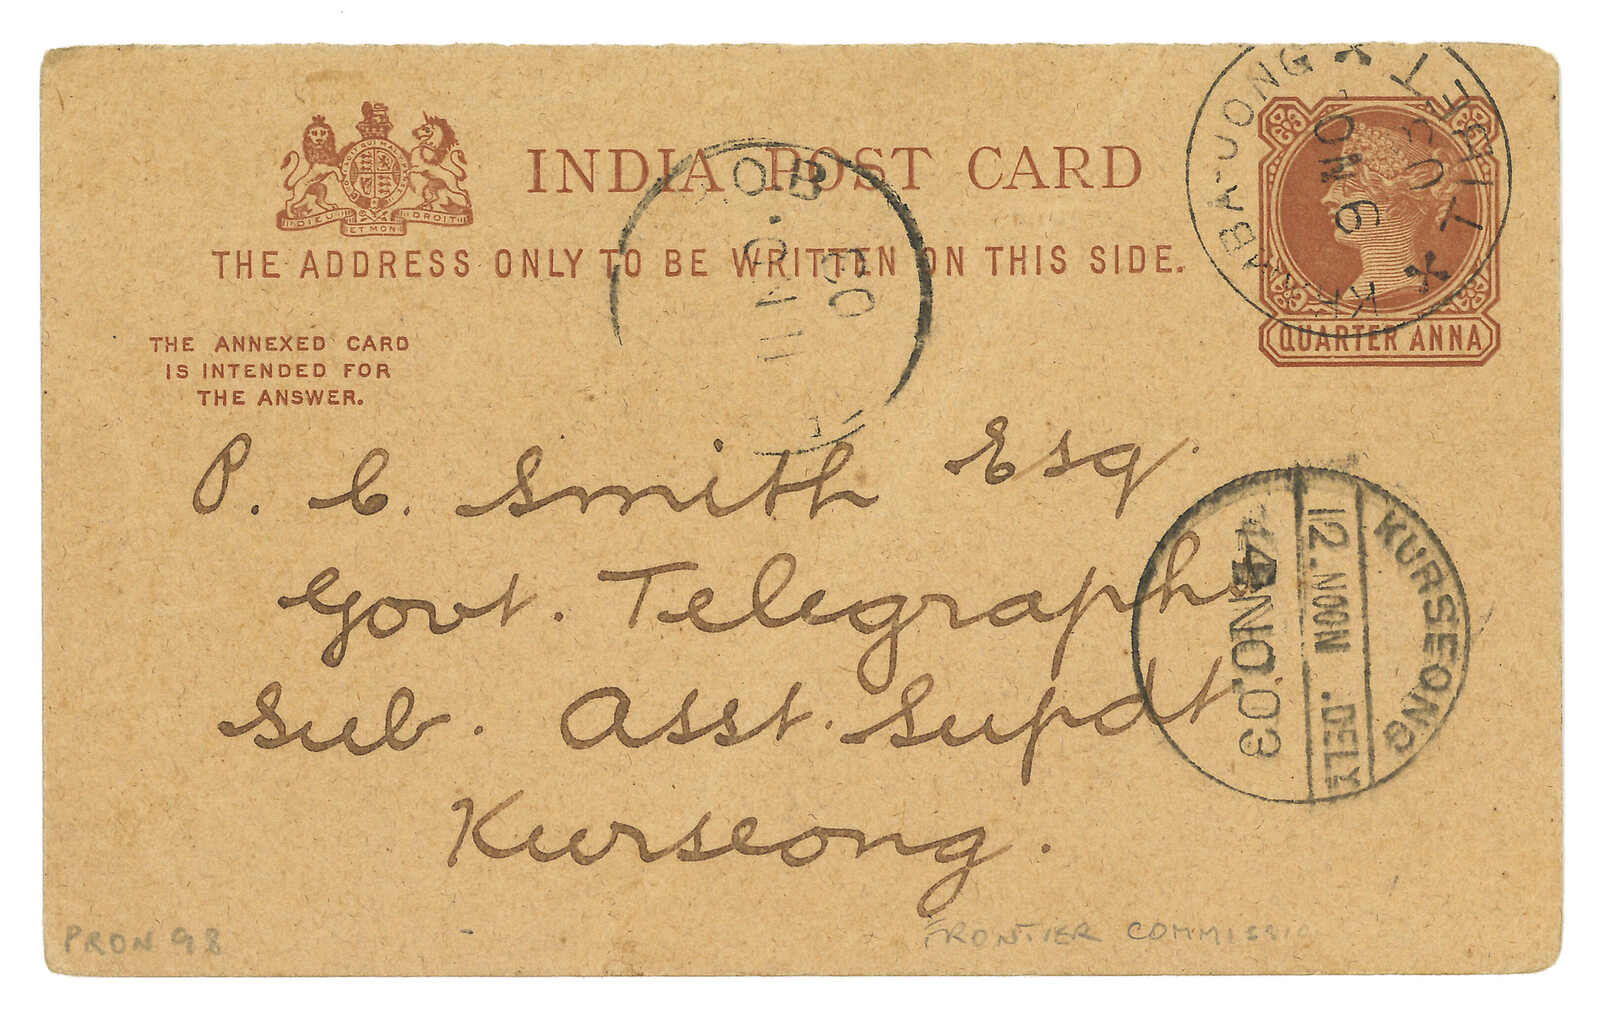 INDIA POST CARD
THE ADDRESS ONLY TO BE WRITTEN ON THIS SIDE.
DIEU ET MON DROIT
THE ANNEXED CARD
IS INTENDED FOR
THE ANSWER.
QUARTER ANNA
KHAMBA-JONG
TIBET
NO 6
03
11 NO.
03
P. C. Smith Esq.
Govt. Telegraphs
Sub. Asst. Supdt.
Kurseong.
KURSEONG
12. NOON .DELY
14 NO.03
PRON 98
FRONTIER COMMISSION